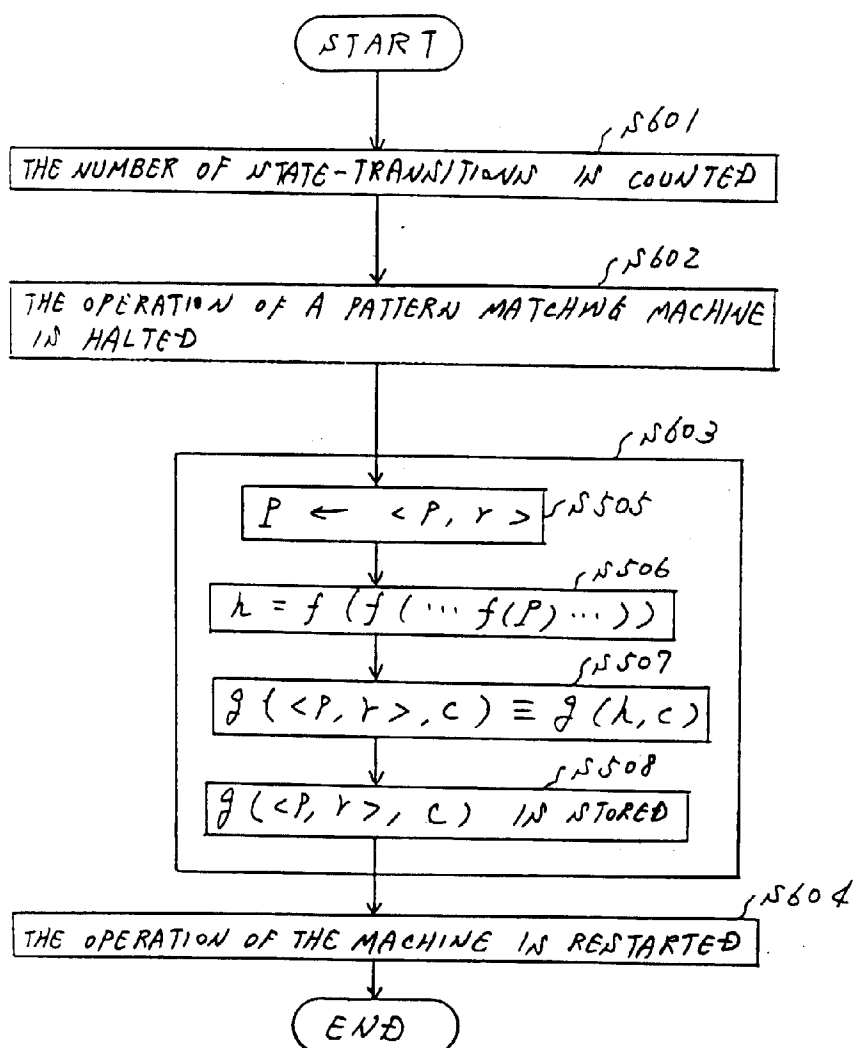 START
S601
THE NUMBER OF STATE-TRANSITIONS IS COUNTED
S602
THE OPERATION OF A PATTERN MATCHING MACHINE
IS HALTED
S603
P ← <P, r>
S505
S506
h = f (f (··· f(P) ···))
S507
g (<P, r>, c) ≡ g (h, c)
S508
g (<P, r>, c) IS STORED
S604
THE OPERATION OF THE MACHINE IS RESTARTED
END